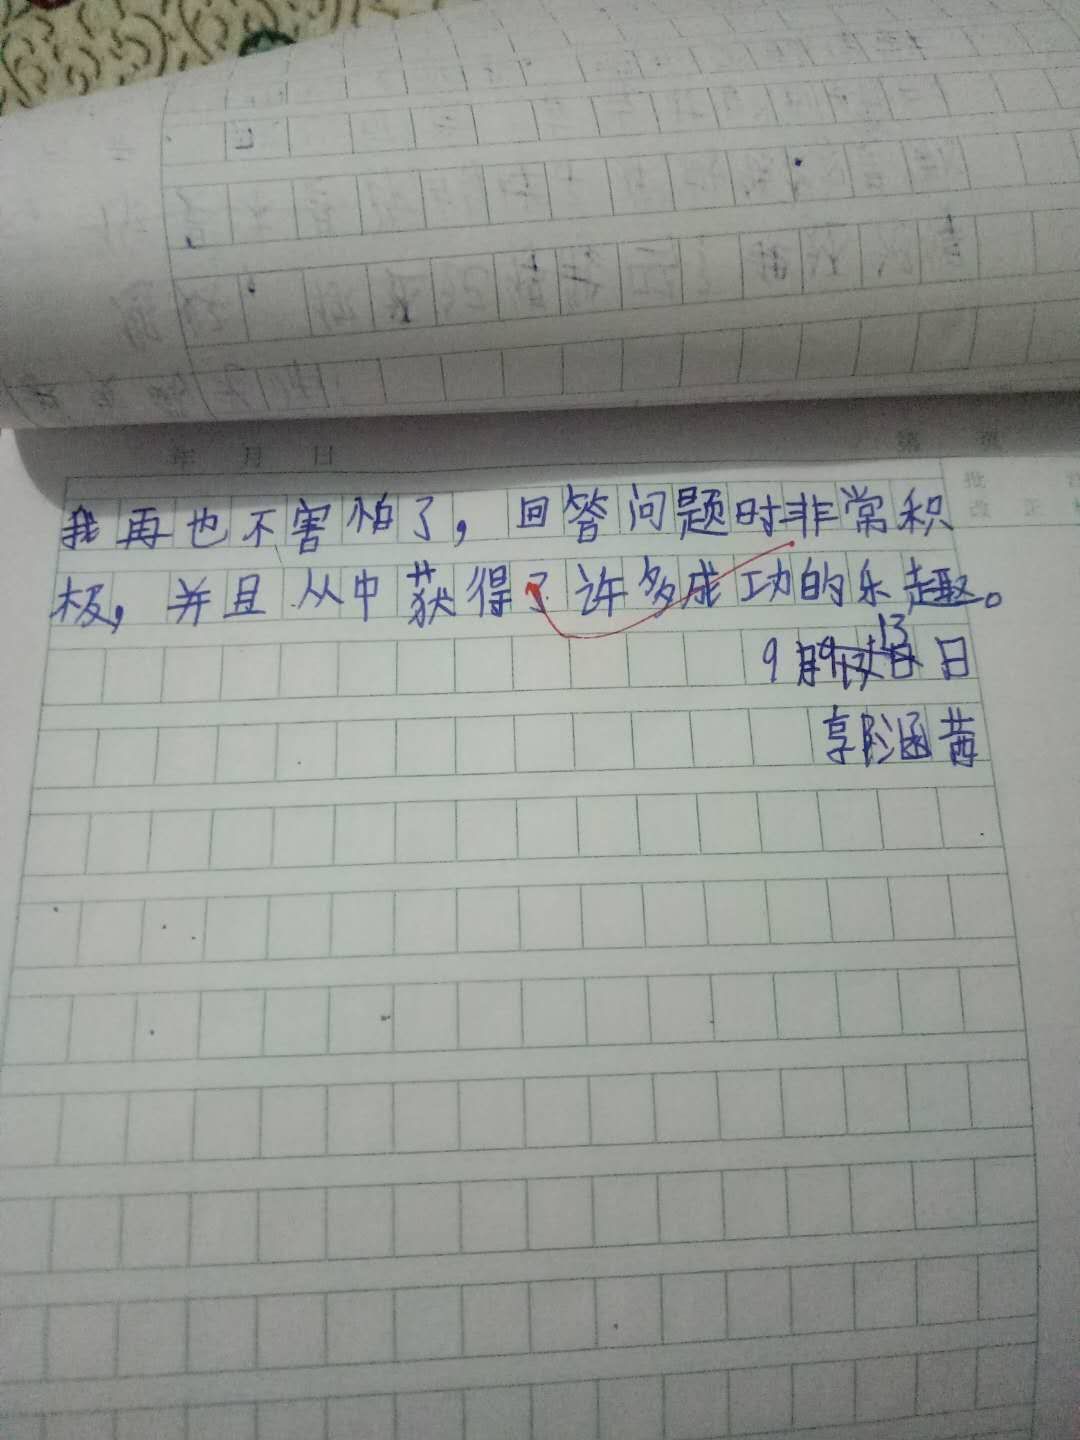 年 月 日 第 页
批
改 正
我再也不害怕了，回答问题时非常积
极，并且从中获得了许多成功的乐趣。
9月13日
涵茜